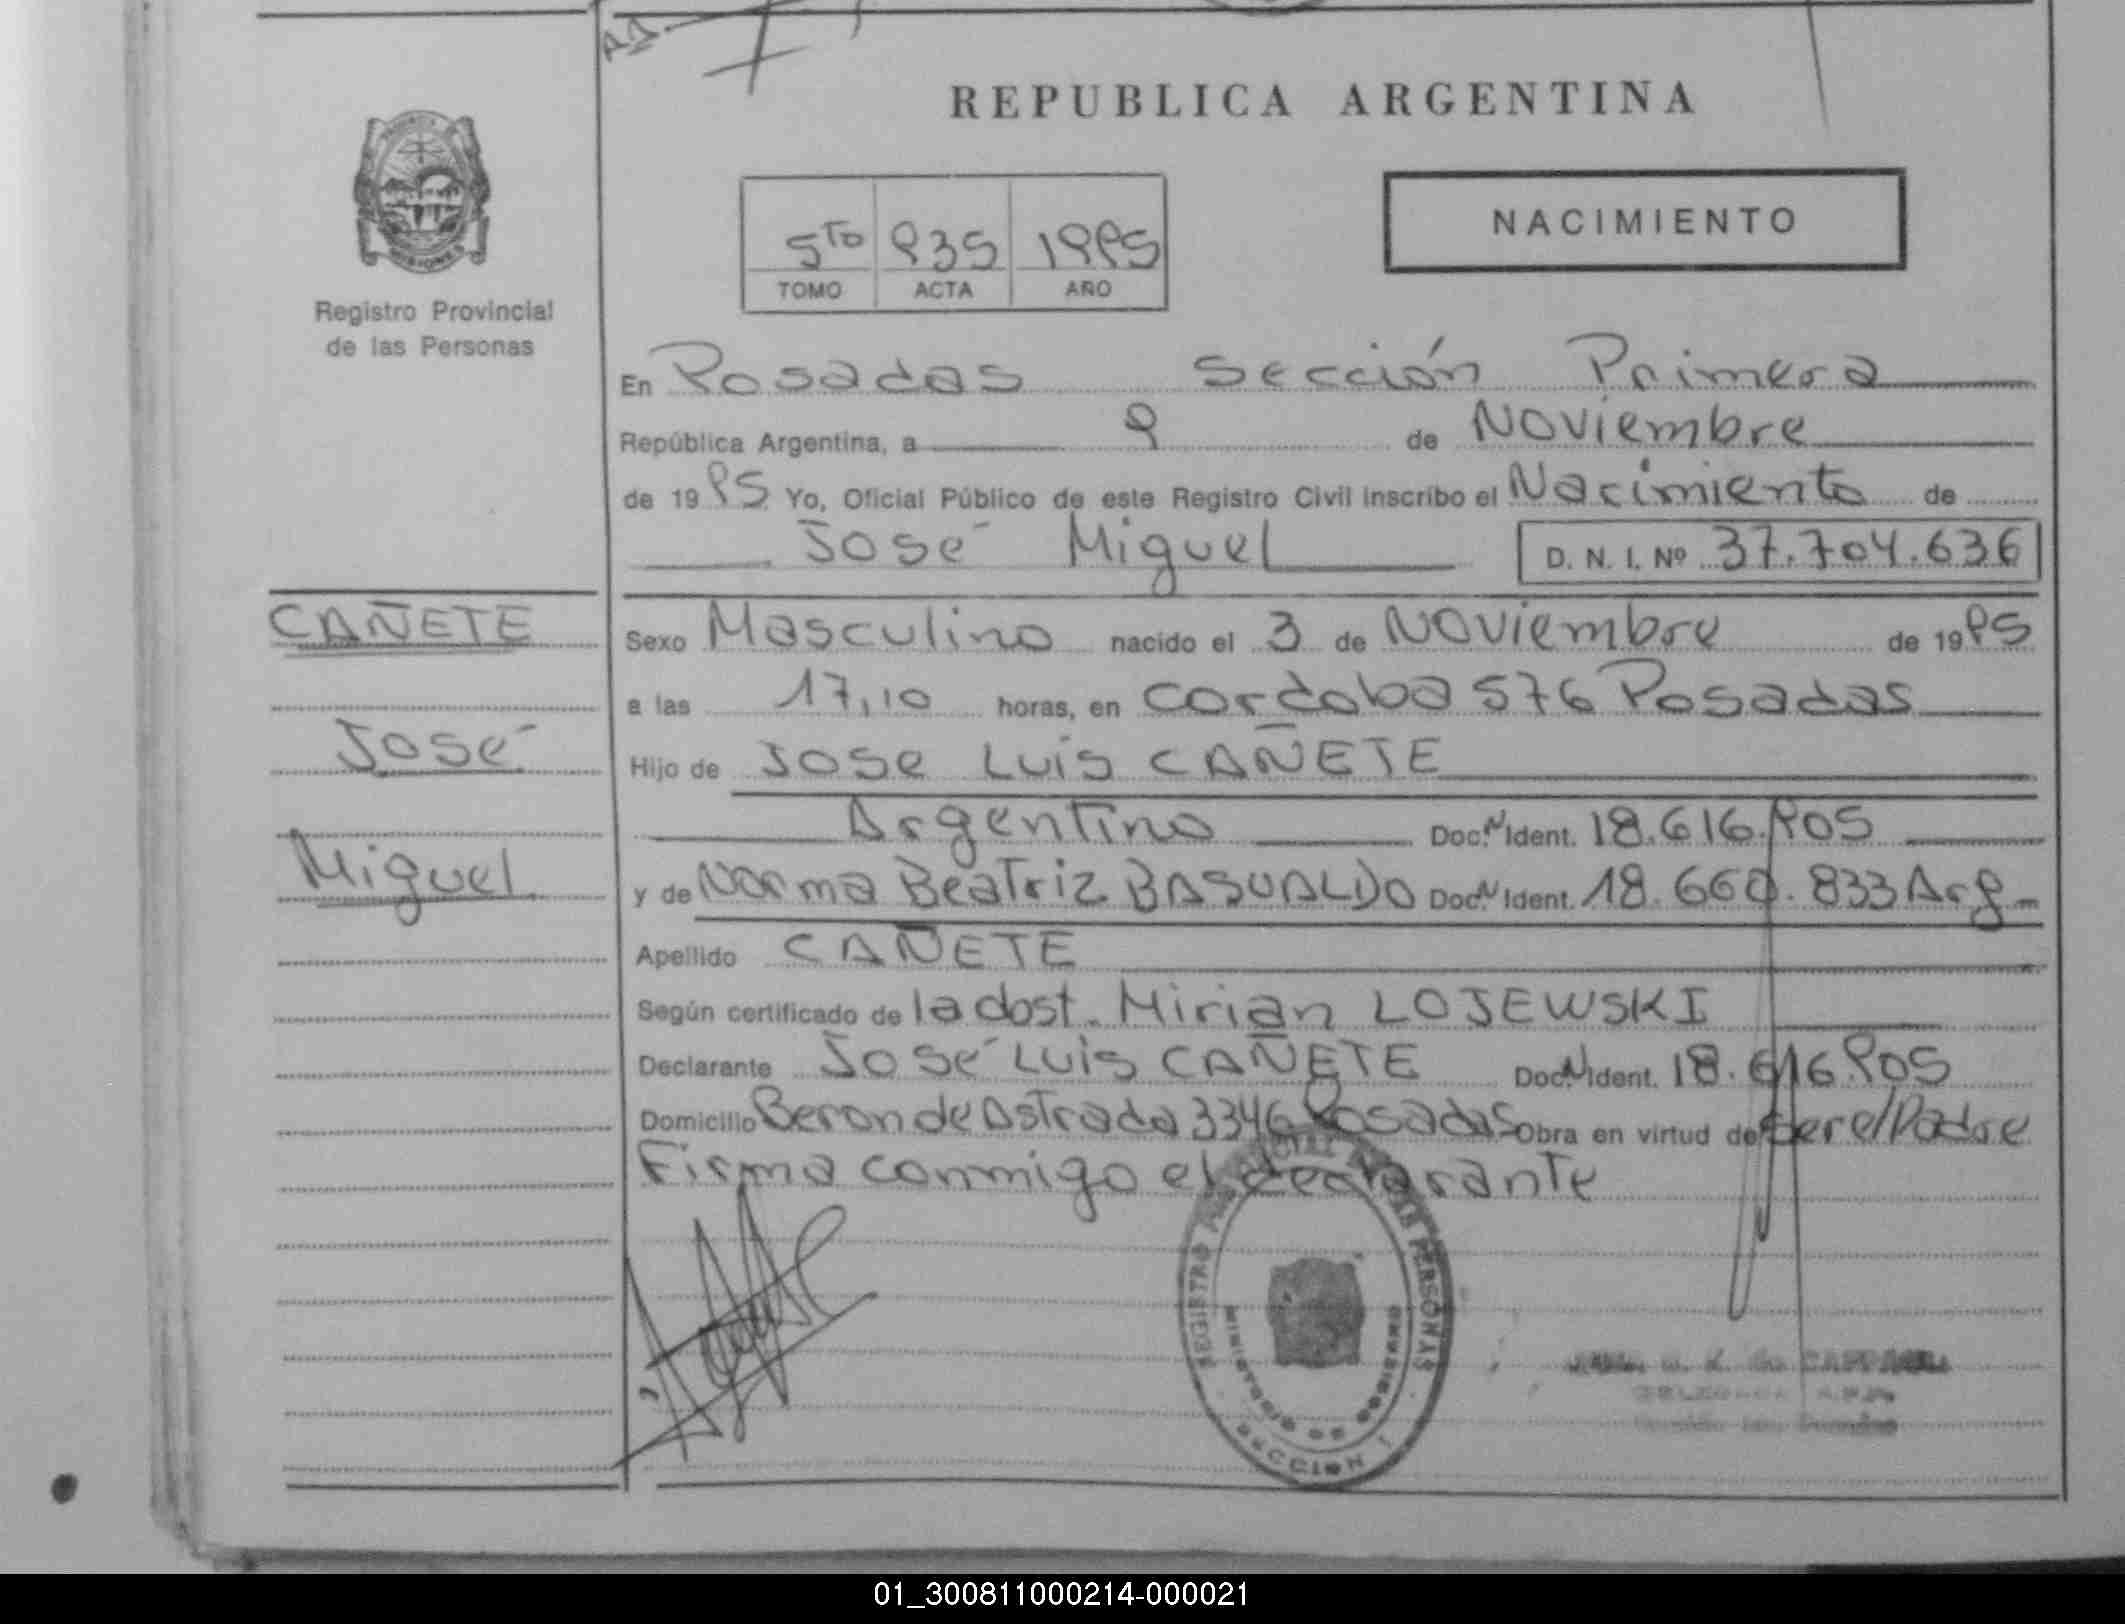 REPUBLICA ARGENTINA
NACIMIENTO
5to 935 1995
TOMO ACTA AÑO
Registro Provincial
de las Personas
En Posadas Sección Primera
República Argentina, a 9 de Noviembre
de 1995 Yo, Oficial Público de este Registro Civil inscribo el Nacimiento de
José Miguel D. N. I. Nº 37.704.636
CAÑETE
José
Miguel
Sexo Masculino nacido el 3 de Noviembre de 1995
a las 17,10 horas, en Cordoba 576 Posadas
Hijo de Jose Luis CAÑETE
Argentino Doc. N Ident. 18.616.905
y de Norma Beatriz BASUALDO Doc. N Ident. 18.660.833 Arg.
Apellido CAÑETE
Según certificado de la obst. Mirian LOJEWSKI
Declarante José Luis CAÑETE Doc. N Ident. 18.616.905
Domicilio Beron de Astrada 3346 Posadas Obra en virtud de ser el Padre
Firma conmigo el declarante
REGISTRO PROVINCIAL DE LAS PERSONAS
MINISTERIO DE GOBIERNO
SECCION 1
01_300811000214-000021